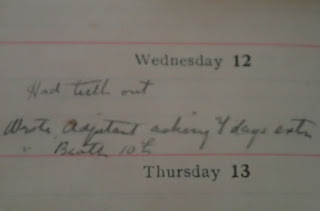 Wednesday 12
Had teeth out
Wrote Adjutant asking 4 days extr
" 10/-
Thursday 13